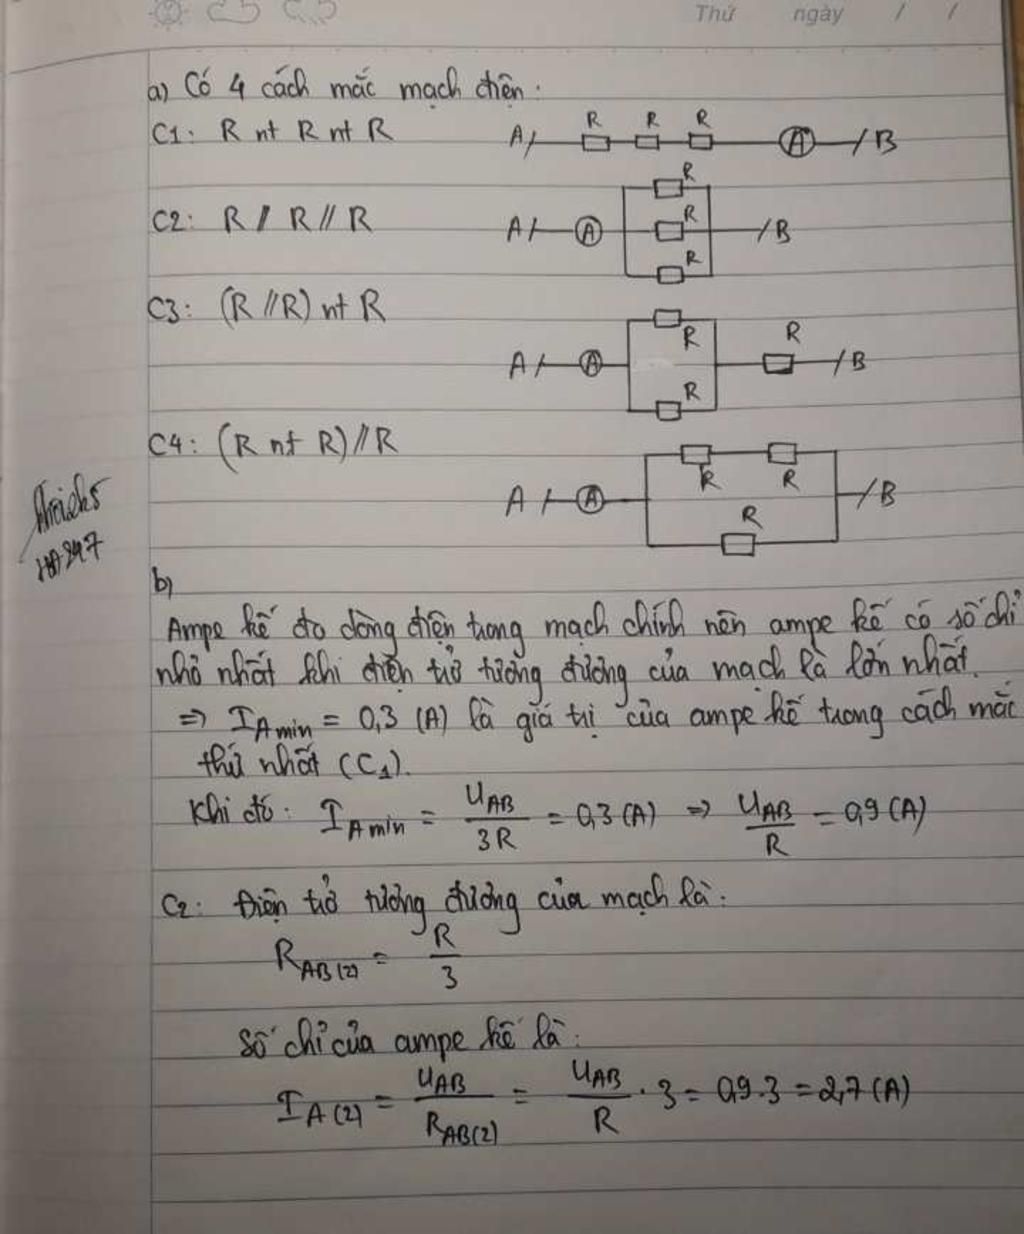 Thứ ngày / /
a) Có 4 cách mắc mạch điện.
C1: R nt R nt R
A R R R A B
C2: R // R // R
A A R R R B
C3: (R // R) nt R
A A R R R B
C4: (R nt R) // R
A A R R R B
b)
Ampe kế đo dòng điện trong mạch chính nên ampe kế có số chỉ
nhỏ nhất khi điện trở tương đương của mạch là lớn nhất.
=> I_A min = 0,3 (A) là giá trị của ampe kế trong cách mắc
thứ nhất (C1).
Khi đó: I_A min = U_AB / 3R = 0,3 (A) => U_AB / R = 0,9 (A)
C2: Điện trở tương đương của mạch là:
R_AB(2) = R / 3
Số chỉ của ampe kế là:
I_A(2) = U_AB / R_AB(2) = U_AB / R . 3 = 0,9.3 = 2,7 (A)